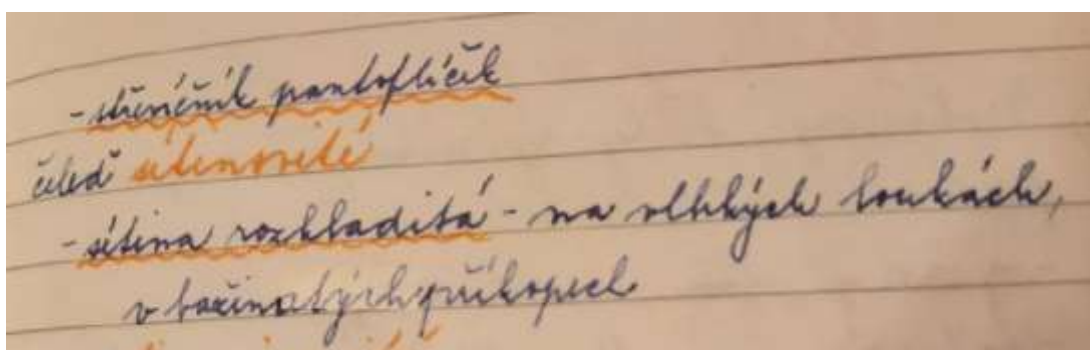 - střevíčník pantoflíček
čeleď sítinovité
- sítina rozkladitá - na vlhkých loukách,
v bažinatých příkopech